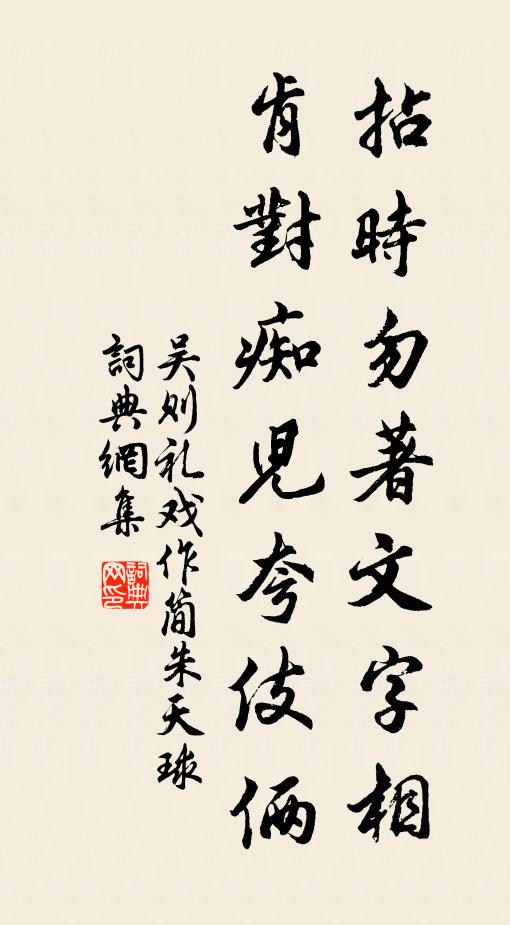 拈時勿著文字相
肯對痴兒夸伎倆
吴则礼戏作简朱天球
詞典網集
詞典网印